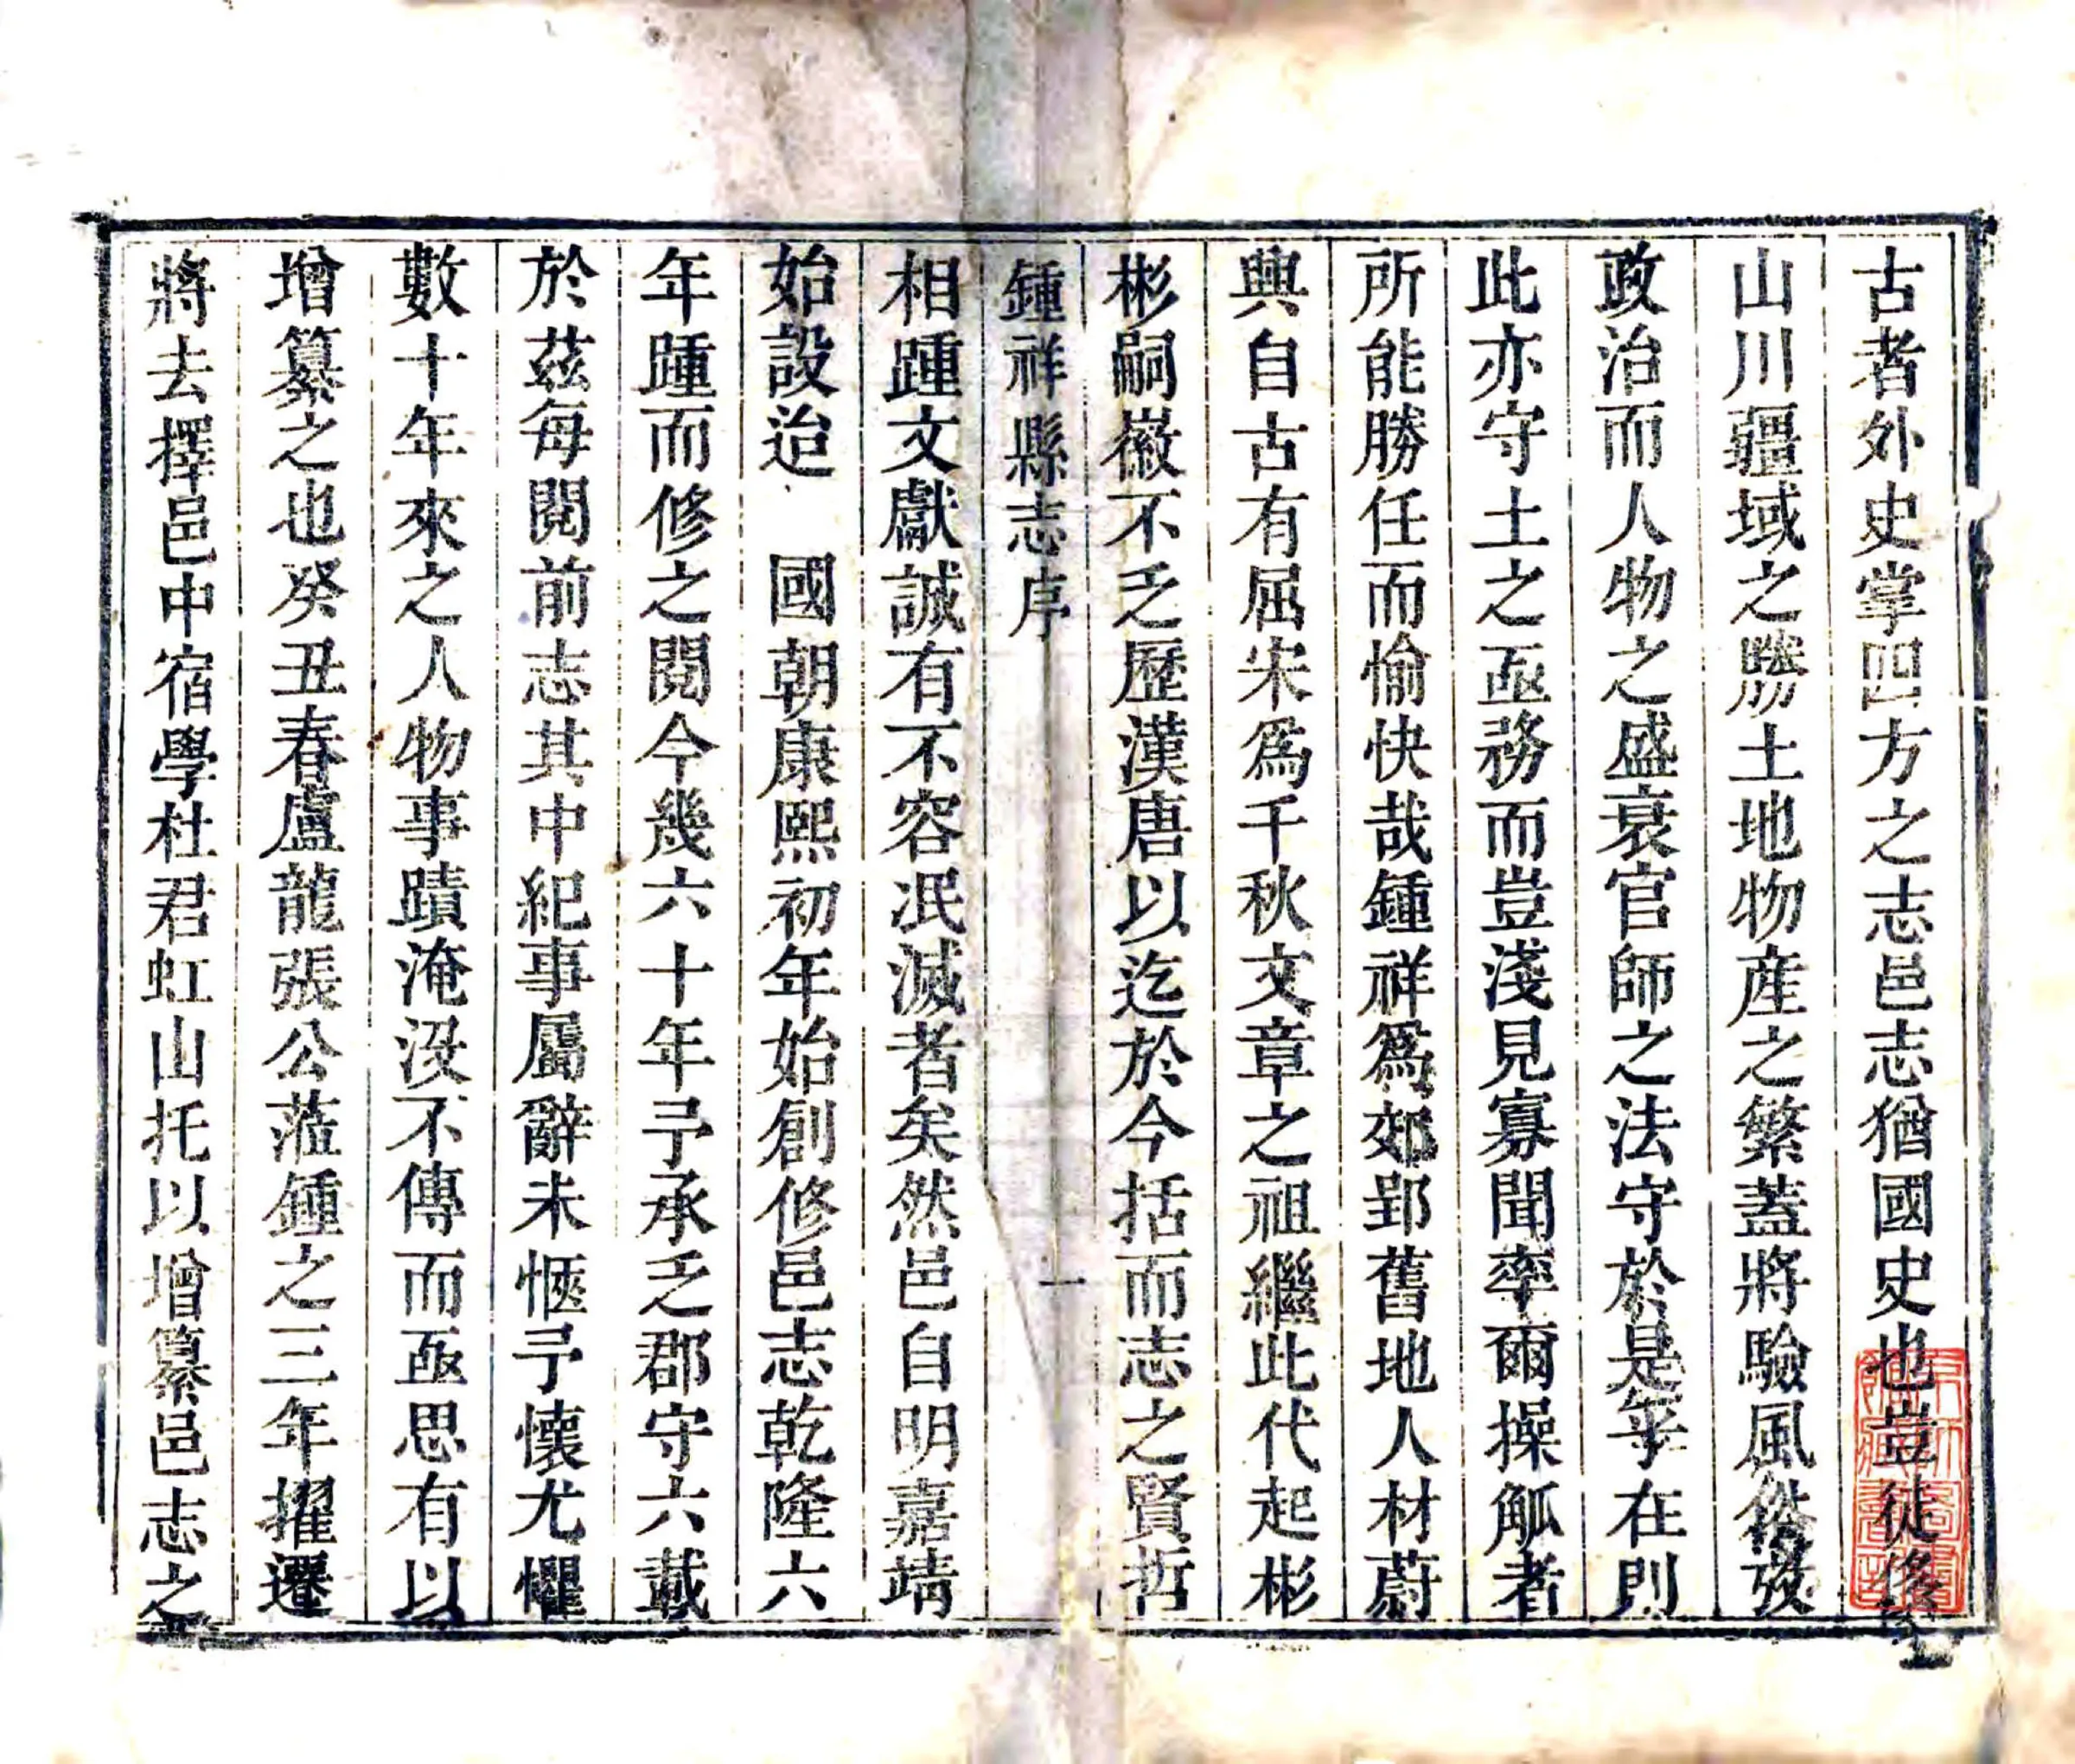 古者外史掌四方之志邑志猶國史也豈徒侈
山川疆域之勝土地物産之繁蓋將驗風俗發
政治而人物之盛衰官師之法守於是乎在則
此亦守土之亟務而豈淺見寡聞率爾操觚者
所能勝任而愉快哉鍾祥爲郊郢舊地人材蔚
興自古有屈宋爲千秋文章之祖繼此代起彬
彬嗣徽不乏歷漢唐以迄於今括而志之賢哲
鍾祥縣志序
一
相踵文獻誠有不容泯滅者矣然邑自明嘉靖
始設迨 國朝康熙初年始創修邑志乾隆六
年踵而修之閱今幾六十年予承乏郡守六載
於茲每閱前志其中紀事屬辭未愜予懷尤懼
數十年來之人物事蹟淹沒不傳而亟思有以
增纂之也癸丑春盧龍張公蒞鍾之三年擢遷
將去擇邑中宿學杜君虹山托以增纂邑志之